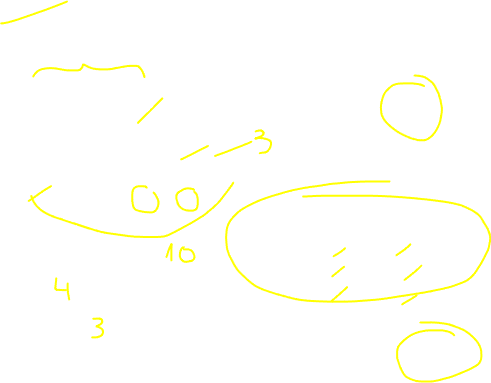 3
10
4
3